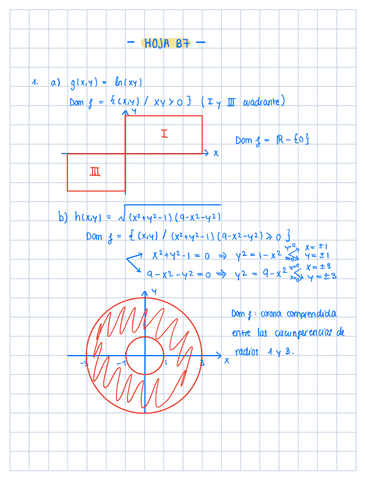 — HOJA B7 —
1. a) g(x,y) = ln(xy)
Dom f = {(x,y) / xy > 0} (I y III cuadrante)
y
I
x
III
Dom f = ℝ - {0}
b) h(x,y) = √(x²+y²-1)(9-x²-y²)
Dom f = {(x,y) / (x²+y²-1)(9-x²-y²) ≥ 0}
x²+y²-1 = 0 ⇒ y² = 1-x² y=0 x = ±1
x=0 y = ±1
9-x²-y² = 0 ⇒ y² = 9-x² y=0 x = ±3
x=0 y = ±3
y
-3 -1 1 3 x
Dom f: corona comprendida
entre las circunferencias de
radios 1 y 3.